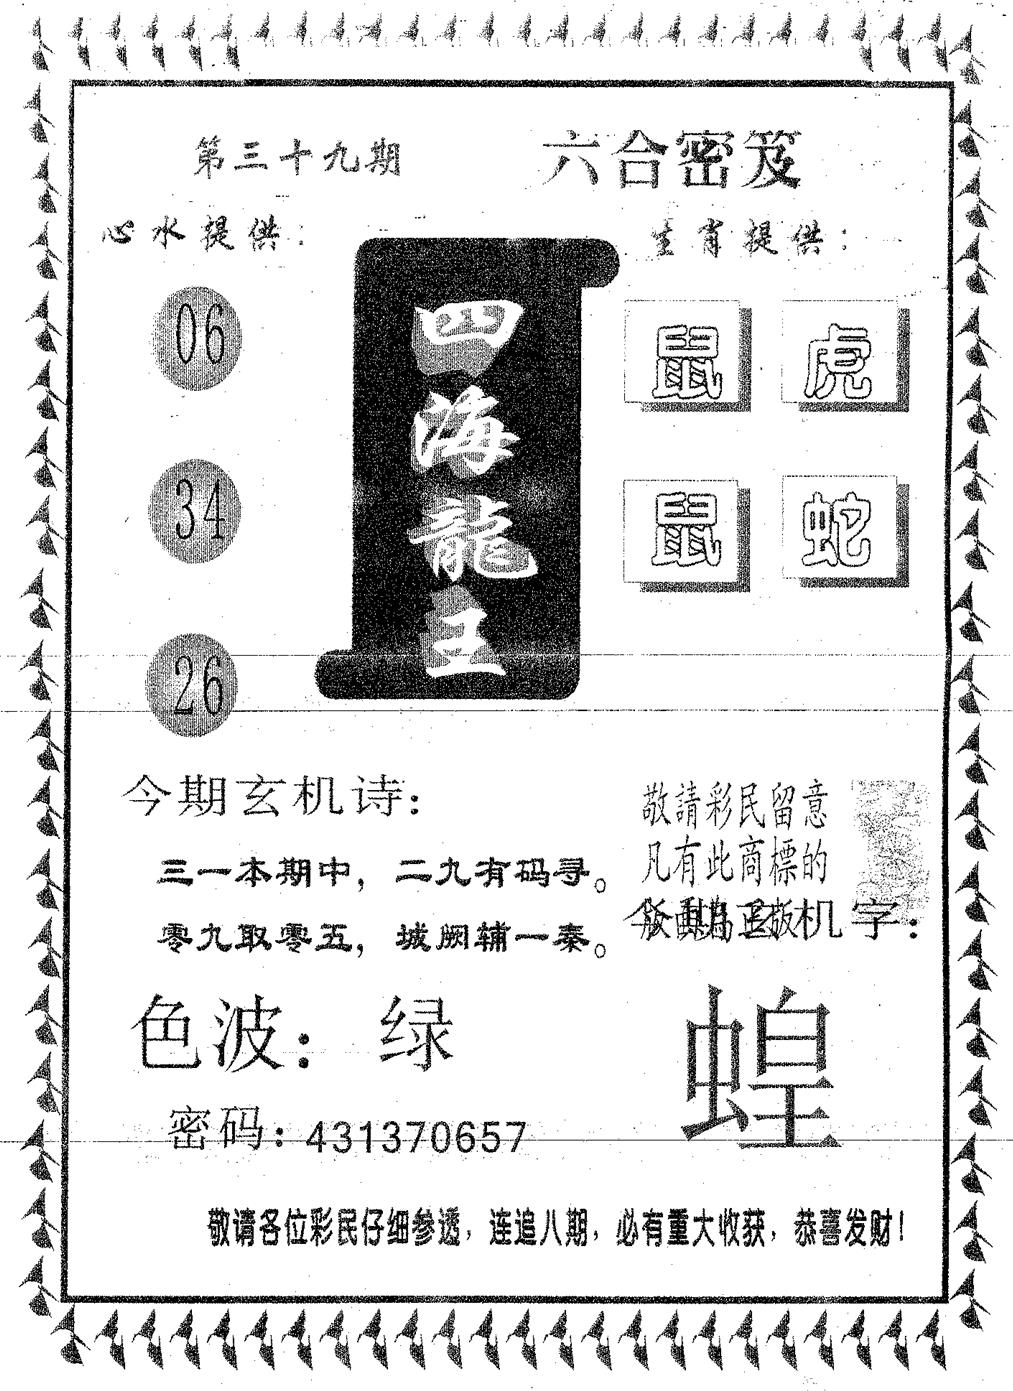 第三十九期
六合密笈
心水提供：
生肖提供：
四海龍王
06
鼠 虎
34
鼠 蛇
26
今期玄机诗：
三一本期中，二九有码寻。
零九取零五，城阙辅一秦。
敬請彩民留意
凡有此商標的
版面為正版
今期玄机字：
蝗
色波：绿
密码：431370657
敬请各位彩民仔细参透，连追八期，必有重大收获，恭喜发财！